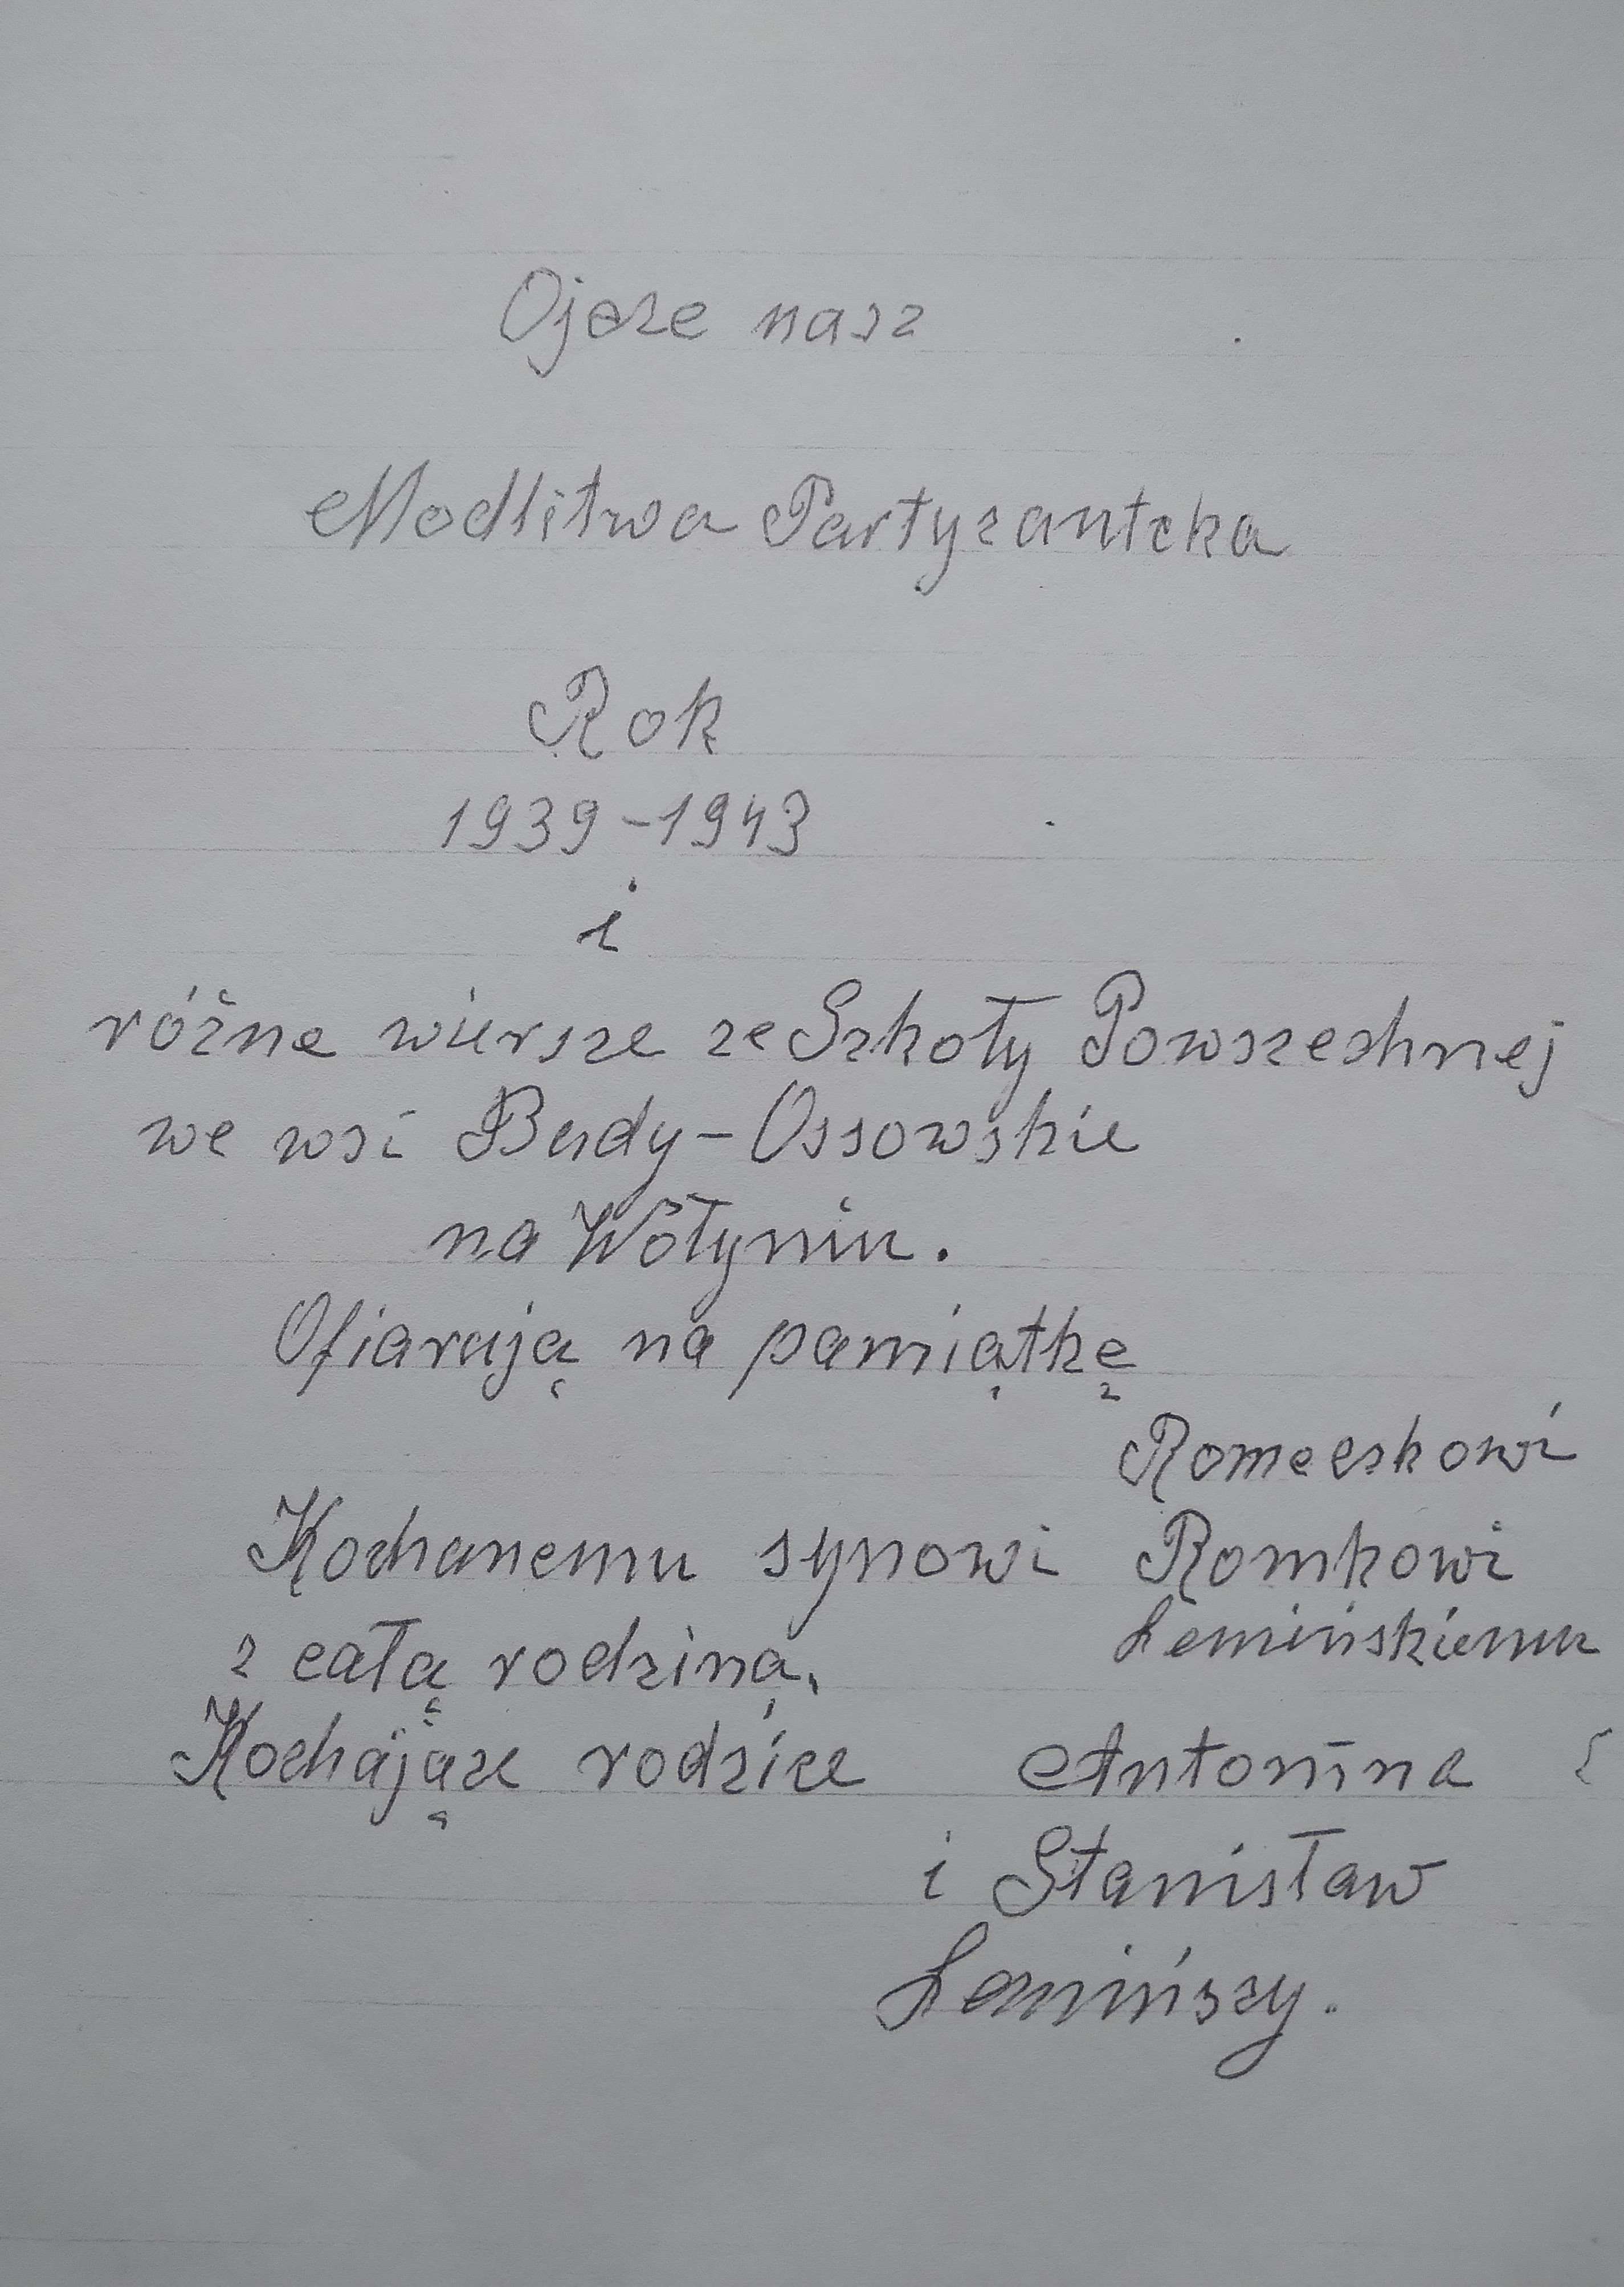 Ojcze nasz
Modlitwa Partyzantcka
Rok
1939-1943
i
różne wiersze ze Szkoły Powszechnej
we wsi Budy-Ossowskie
na Wołyniu.
Ofiarują na pamiątkę
Romeczkowi
Kochanemu synowi Romkowi
Lemińskiemu
z całą rodziną,
Kochające rodzice Antonina
i Stanisław
Lemińszy.